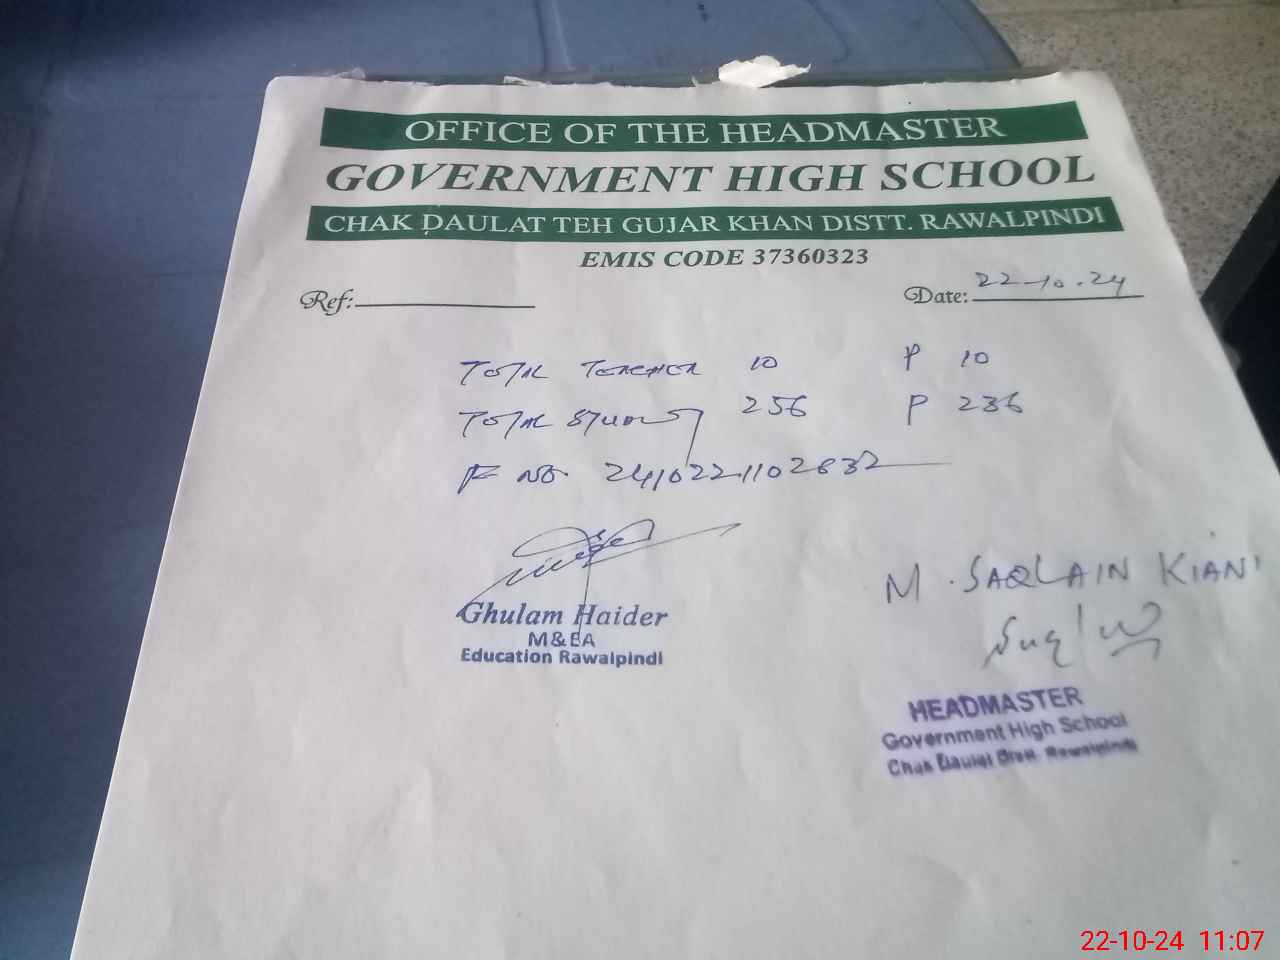 OFFICE OF THE HEADMASTER
GOVERNMENT HIGH SCHOOL
CHAK DAULAT TEH GUJAR KHAN DISTT. RAWALPINDI
EMIS CODE 37360323
Ref:
Date: 22-10-24
TOTAL TEACHER 10 P 10
TOTAL STUDENT 256 P 236
F NO. 2410221102632
Ghulam Haider
M&EA
Education Rawalpindi
M. SAQLAIN KIANI
HEADMASTER
Government High School
Chak Daulat Distt. Rawalpindi
22-10-24 11:07